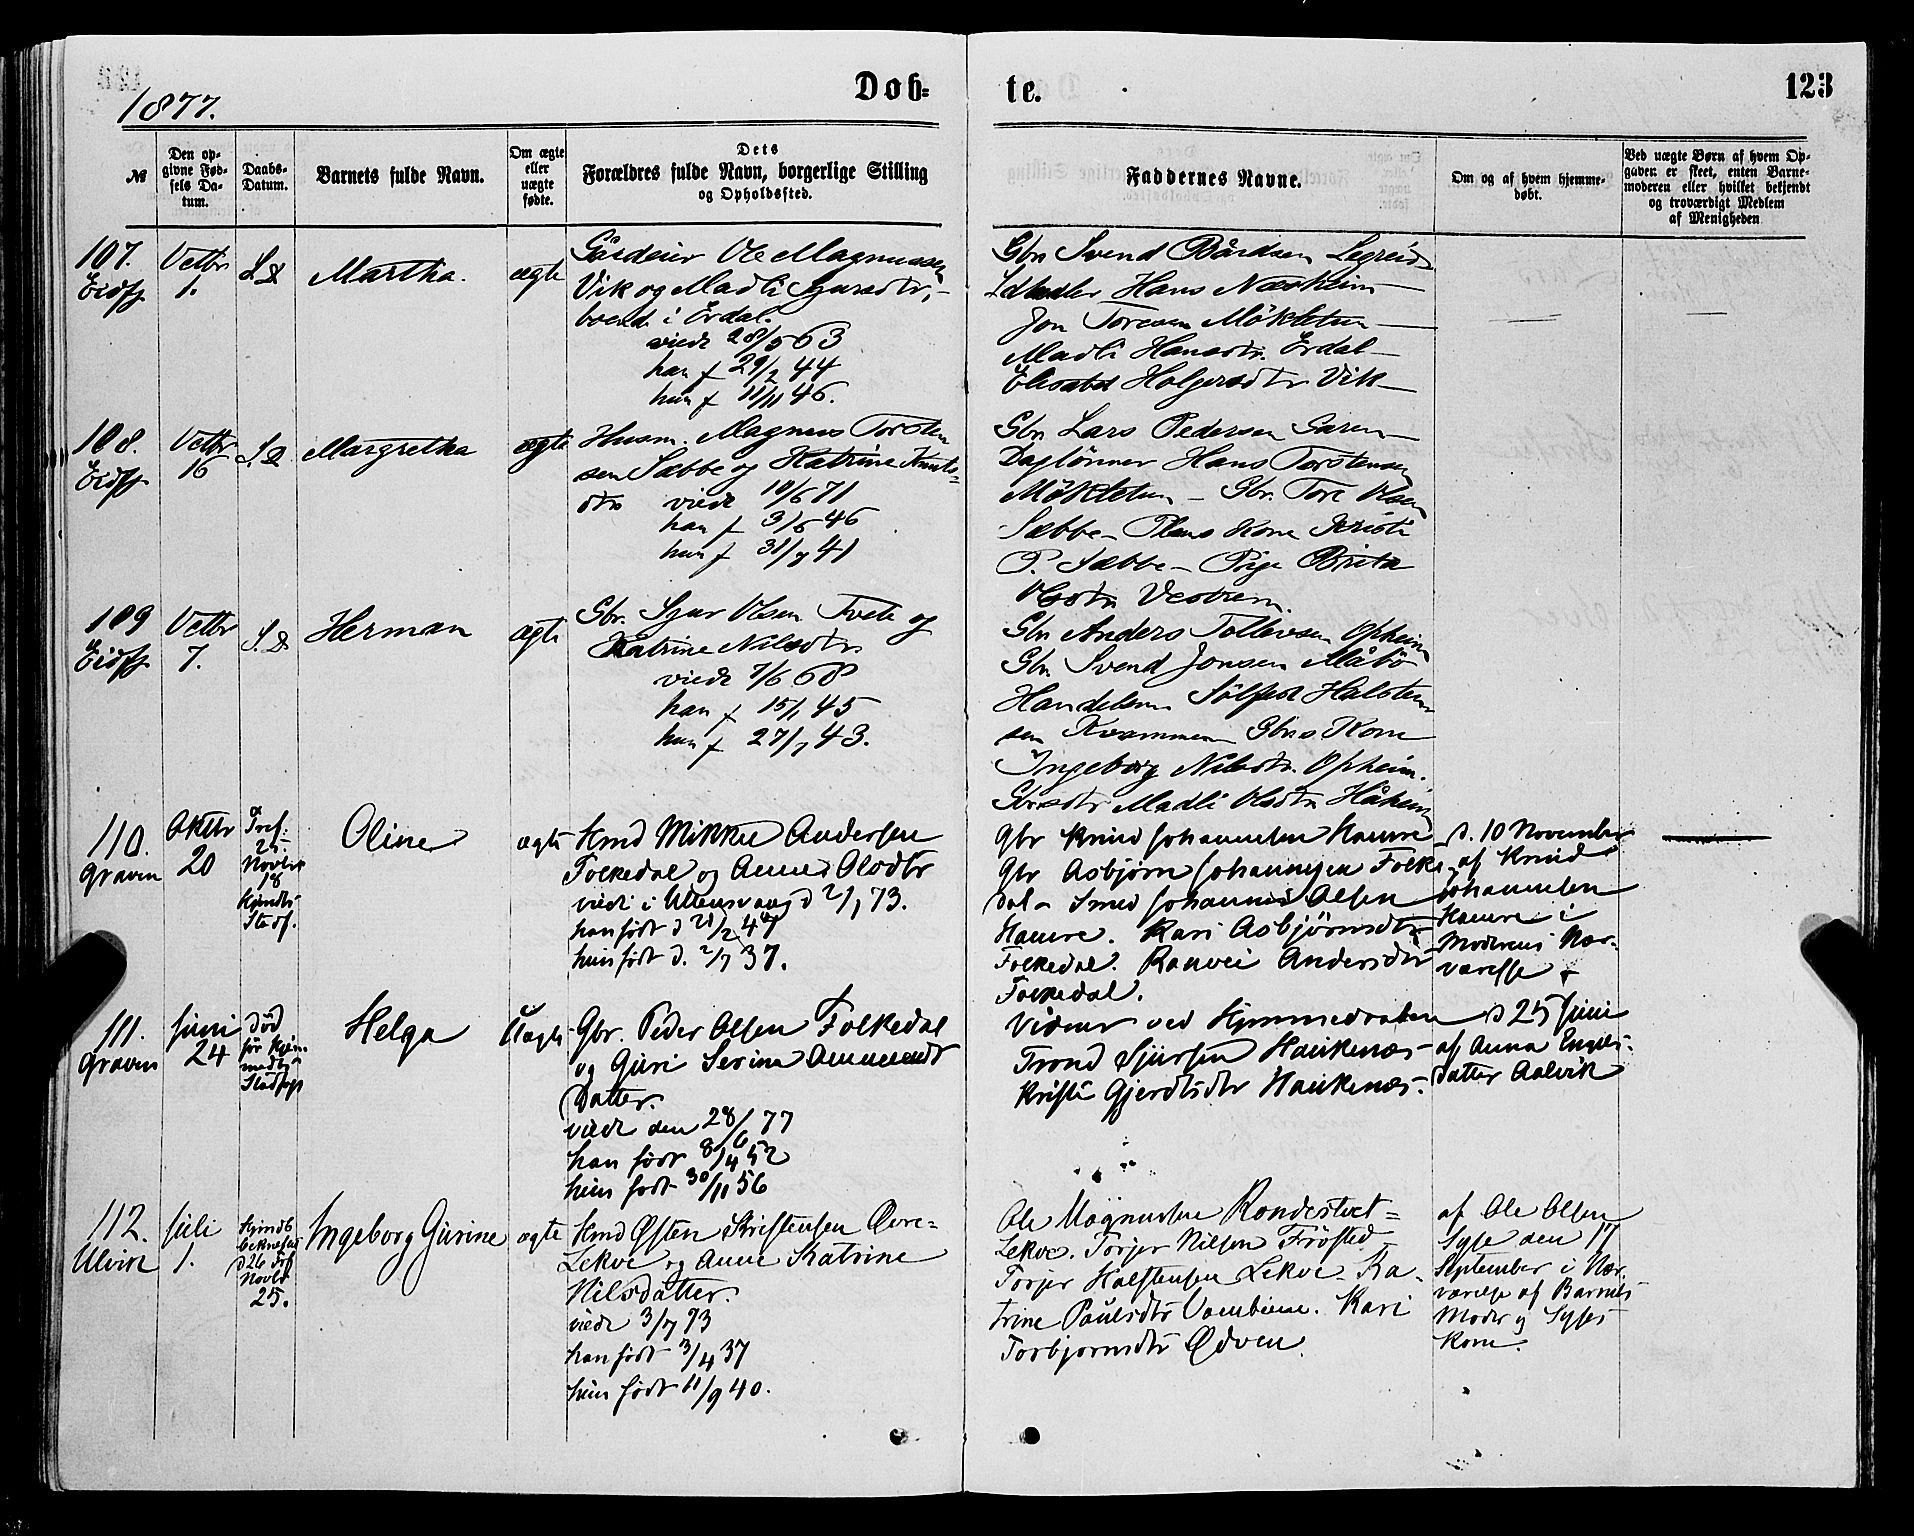 1877.
Døb-
te.
123
№
Den op-
givne Fød-
sels Da-
tum.
Daabs-
Datum.
Barnets fulde Navn.
Om ægte
eller
uægte
fødte.
Dets
Forældres fulde Navn, borgerlige Stilling
og Opholdssted.
Faddernes Navne.
Om og af hvem hjemme-
døbt.
Ved uægte Børn af hvem Op-
gaven er skeet, enten Barne-
moderen eller hvilket bekjendt
og troværdigt Medlem
af Menigheden
107.
Eidfj
1.
S. D
Martha.
ægte
Gårdeier Ole Magnussen
Vik og Madli Sjursdtr,
boende i Erdal.
viede 28/5 63
han f 29/2 44
hun f 11/11 46.
Gbr Svend Bårdsen Legreid
Hans Næsheim
Jon Toresen Mökletun
Madli Hansdtr. Erdal
Elisabet Holgersdtr Vik
108.
Eidfj
16
S. D.
Margretha
ægte
Husm. Magnus Torsten
sen Sæbbe og Katrine Knuts-
dtr viede 10/6 71
han f 3/6 46
hun f 31/7 41
Gbr Lars Pedersen Garen
Daglönner Hans Torstensen
Mökletun - Gbr. Tore Olsen
Sæbbe - Plads Kone Kristi
P. Sæbbe - Pige Brita
Olsdtr
109
Eidfj
7.
S. D
Herman
ægte
Gbr. Sjur Olsen Tveit og
Katrine Nilsdtr
viede 7/6 68
han f 15/1 45
hun f 27/7 43.
Gbr Anders Tollevsen Opheim
Gbr. Svend Jonsen Måbö
Handelsm. Sölfest Halsten
sen Kvammen Gbrs Kone
Ingeborg Nilsdtr. Opheim.
Gbrsdtr Madli Olsdtr Håheim
110.
Graven
Oktbr
20
Tref:
25.
Novbr
18
Kjendts
Stadf.
Oline
ægte
Kmd Mikkel Andersen
Folkedal og Anna Olsdtr
viede i Ullensvang d 2/1 73.
han født d 21/2 44
hun født d. 2/7 37.
Gbr Knud Johannesen Hamre
Gbr Asbjørn Johannesen Folke
dal - Smed Johannes Olsen
Hamre. Kari Asbjørnsdtr
Folkedal. Ranvei Andersdtr
Folkedal.
d. 10 November
af Knud
Johannesen
Hamre i
Moderens Nær-
værelse
111.
Graven
Juni
24
død
før Hjem
medb.
Stadfest
Helga
Uægte
Gbr. Peder Olsen Folkedal
og Guri Serina Ammunds
Datter.
viede den 28/6 77
han født 8/4 52
hun født 30/11 56
Vidner ved Hjemmedaaben
Trond Sjursen Haukenæs
Kristi Gjerdtsdtr Haukenæs
d 25 Juni
af Anna Engels-
datter Aalvik
112.
Ulvik
Juli
1.
d 26
Novbr
25.
Ingeborg Gurine
ægte
Kmd Østen Kristensen Øvre-
Lekve og Anne Katrine
Nilsdatter.
viede 3/7 73
han født 3/4 37
hun født 11/9 40.
Ole Magnussen Rondestvet-
Lekve. Torjer Nilsen Frösted
Torjer Halstensen Lekve - Ka-
trine Paulsdtr Vambheim. Kari
Torbjørnsdtr Ødven.
af Ole Olsen
Syse den 17
September i Nær-
værelse af Barnets
Moder og Syses
Kone.